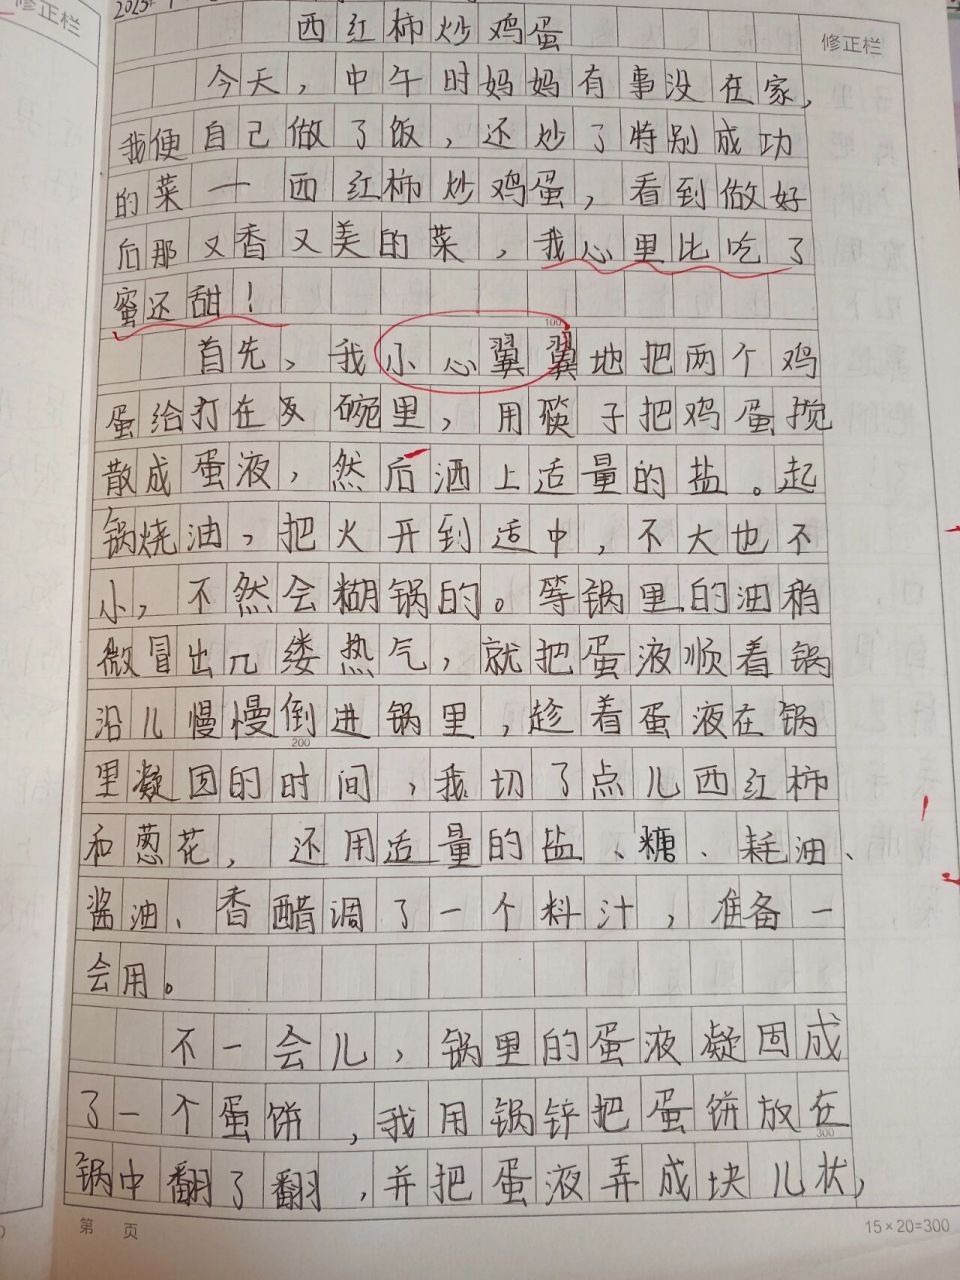 修正栏
西红柿炒鸡蛋
修正栏
今天，中午时妈妈有事没在家，
我便自己做了饭，还炒了特别成功
的菜一西红柿炒鸡蛋，看到做好
后那又香又美的菜，我心里比吃了
蜜还甜！
100
首先，我小心翼翼地把两个鸡
蛋给打在碗里，用筷子把鸡蛋搅
散成蛋液，然后洒上适量的盐。起
锅烧油，把火开到适中，不大也不
小，不然会糊锅的。等锅里的油稍
微冒出几缕热气，就把蛋液顺着锅
沿儿慢慢倒进锅里，趁着蛋液在锅
200
里凝固的时间，我切了点儿西红柿
和葱花，还用适量的盐、糖、耗油、
酱油、香醋调了一个料汁，准备一
会用。
不一会儿，锅里的蛋液凝固成
了一个蛋饼，我用锅锌把蛋饼放在
300
锅中翻了翻，并把蛋液弄成块儿状，
第 页
15×20=300